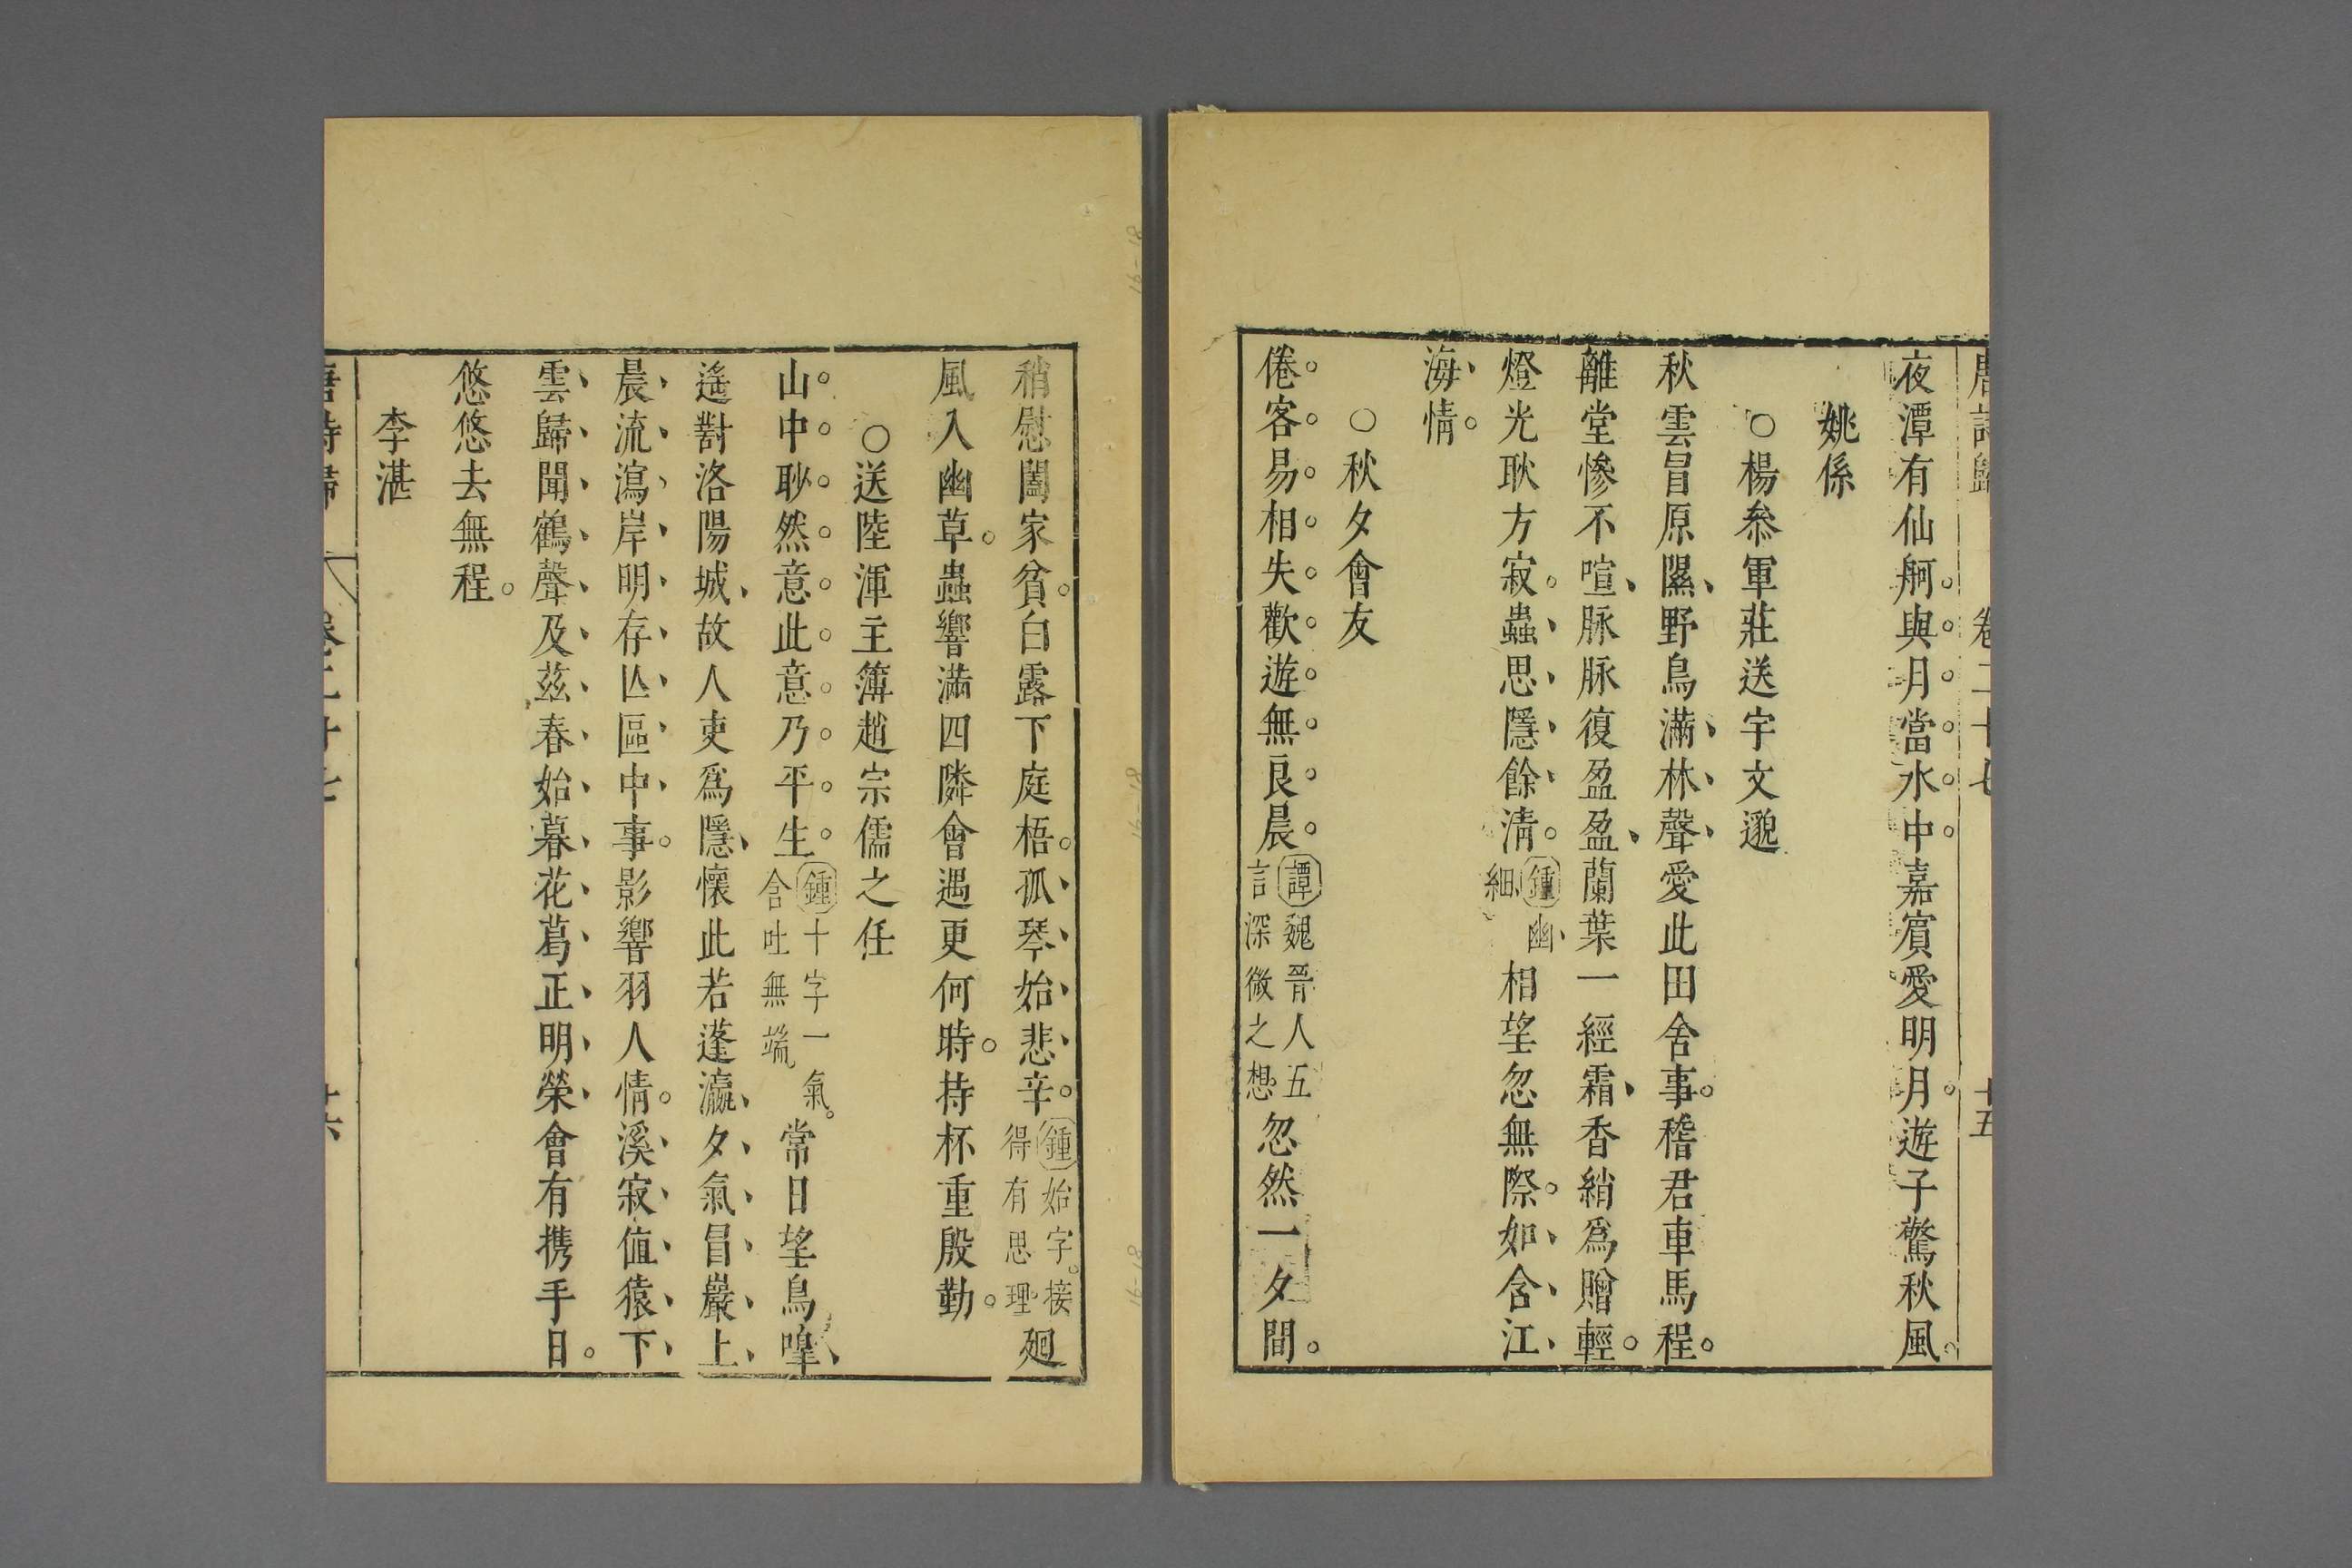 唐詩歸 卷二十七 十五
夜潭有仙舸。與月當水中。嘉賓愛明月。遊子驚秋風。
姚係
○楊叅軍莊送宇文邈
秋雲冒原隰、野鳥滿林聲、愛此田舍事。稽君車馬程。
離堂慘不喧、脉脉復盈盈、蘭葉一經霜、香綃爲贈輕。
燈光耿方寂。蟲思隱餘清。鍾幽細、相望忽無際。如含江
海情。
○秋夕會友
倦客易相失。歡遊無良晨。譚魏晉人五言深微之想忽然一夕間。
稍慰闔家貧。白露下庭梧。孤琴始悲辛。鍾始字。接得有思理。廻
風入幽草。蟲響滿四隣會遇更何時。持杯重殷勤。
○送陸渾主簿趙宗儒之任
山中眇然意。此意乃平生。鍾十字一氣。含吐無端。常日望鳥嘷、
遙對洛陽城、故人吏爲隱、懷此若蓬瀛、夕氣冒巖上、
晨流瀉岸明、存亾區中事。影響羽人情。溪寂值猿下、
雲歸聞鶴聲、及茲春始暮、花葛正明榮、會有携手日。
悠悠去無程。
李湛
唐詩歸 卷二十七 十六